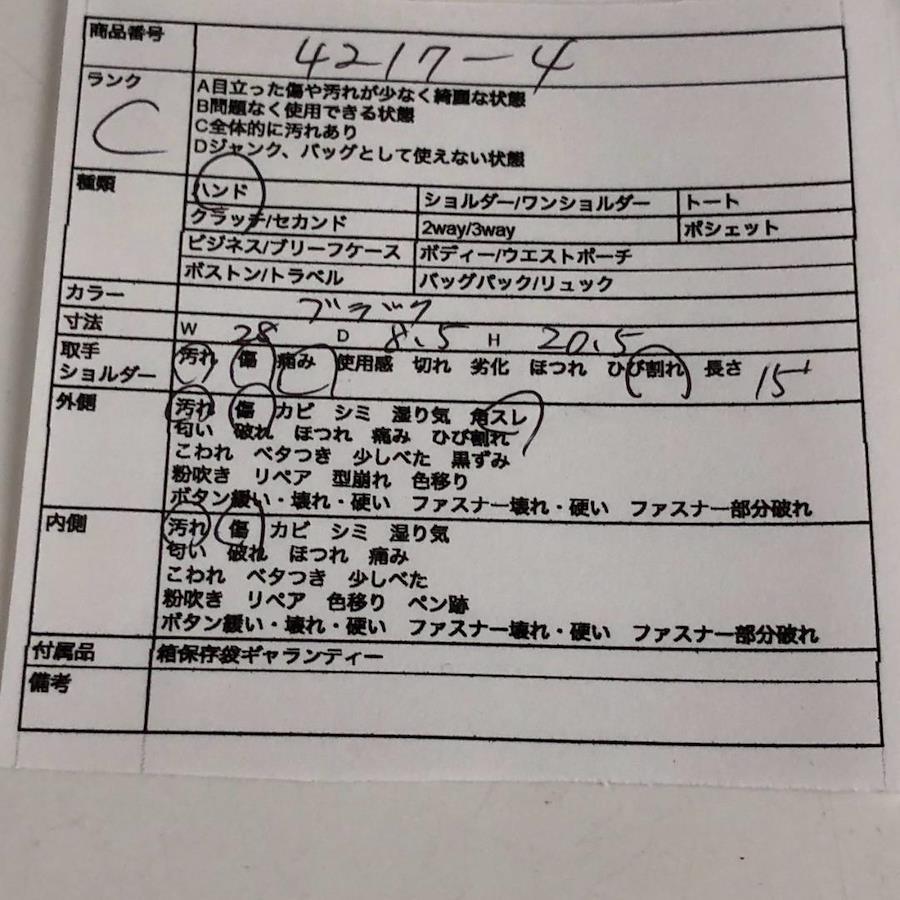 商品番号 4217-4
ランク C
A目立った傷や汚れが少なく綺麗な状態
B問題なく使用できる状態
C全体的に汚れあり
Dジャンク、バッグとして使えない状態
種類 ハンド ショルダー/ワンショルダー トート
クラッチ/セカンド 2way/3way ポシェット
ビジネス/ブリーフケース ボディー/ウエストポーチ
ボストン/トラベル バッグパック/リュック
カラー ブラック
寸法 W 28 D 8.5 H 20.5
取手 汚れ 傷 痛み 使用感 切れ 劣化 ほつれ ひび割れ 長さ 15
ショルダー
外側 汚れ 傷 カビ シミ 湿り気 角スレ
匂い 破れ ほつれ 痛み ひび割れ
こわれ ベタつき 少しべた 黒ずみ
粉吹き リペア 型崩れ 色移り
ボタン緩い・壊れ・硬い ファスナー壊れ・硬い ファスナー部分破れ
内側 汚れ 傷 カビ シミ 湿り気
匂い 破れ ほつれ 痛み
こわれ ベタつき 少しべた
粉吹き リペア 色移り ペン跡
ボタン緩い・壊れ・硬い ファスナー壊れ・硬い ファスナー部分破れ
付属品 箱保存袋ギャランティー
備考